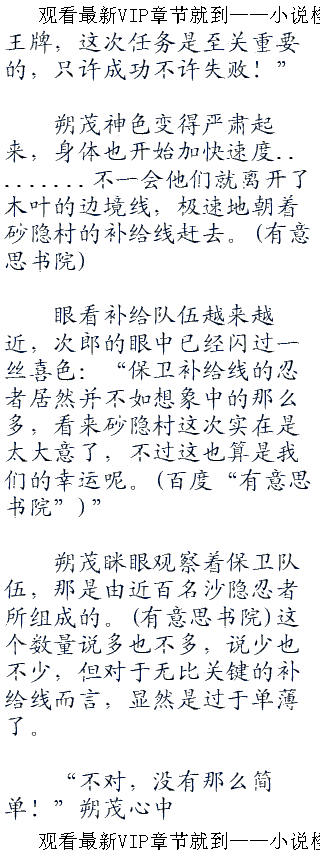 观看最新VIP章节就到——小说检
王牌，这次任务是至关重要
的，只许成功不许失败！”
朔茂神色变得严肃起
来，身体也开始加快速度..
.......不一会他们就离开了
木叶的边境线，极速地朝着
砂隐村的补给线赶去。(有意
思书院)
眼看补给队伍越来越
近，次郎的眼中已经闪过一
丝喜色：“保卫补给线的忍
者居然并不如想象中的那么
多，看来砂隐村这次实在是
太大意了，不过这也算是我
们的幸运呢。(百度“有意思
书院”)”
朔茂眯眼观察着保卫队
伍，那是由近百名沙隐忍者
所组成的。(有意思书院)这
个数量说多也不多，说少也
不少，但对于无比关键的补
给线而言，显然是过于单薄
了。
“不对，没有那么简
单！”朔茂心中
观看最新VIP章节就到——小说检